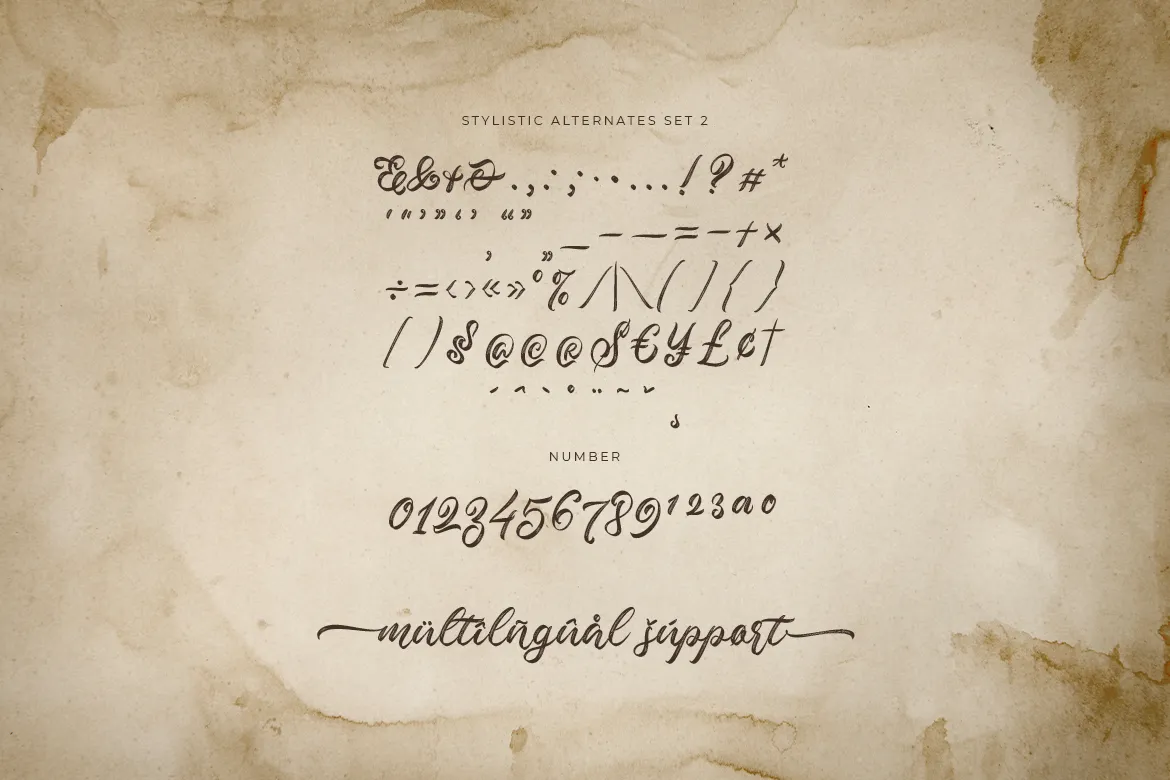 STYLISTIC ALTERNATES SET 2
&&+ . , : ; · • … ! ? # *
' " ’ ” ‘ ’ “ ”
‚ „ _ – — = − + ×
÷ = ‹ › « » ° % / | \ ( ) { }
( ) $ @ © ® § € ¥ £ ¢ †
´ ˆ ` ˚ ¨ ˜ ˇ
¸
NUMBER
0123456789 1 2 3 a o
mültîlñgûål šúppørt